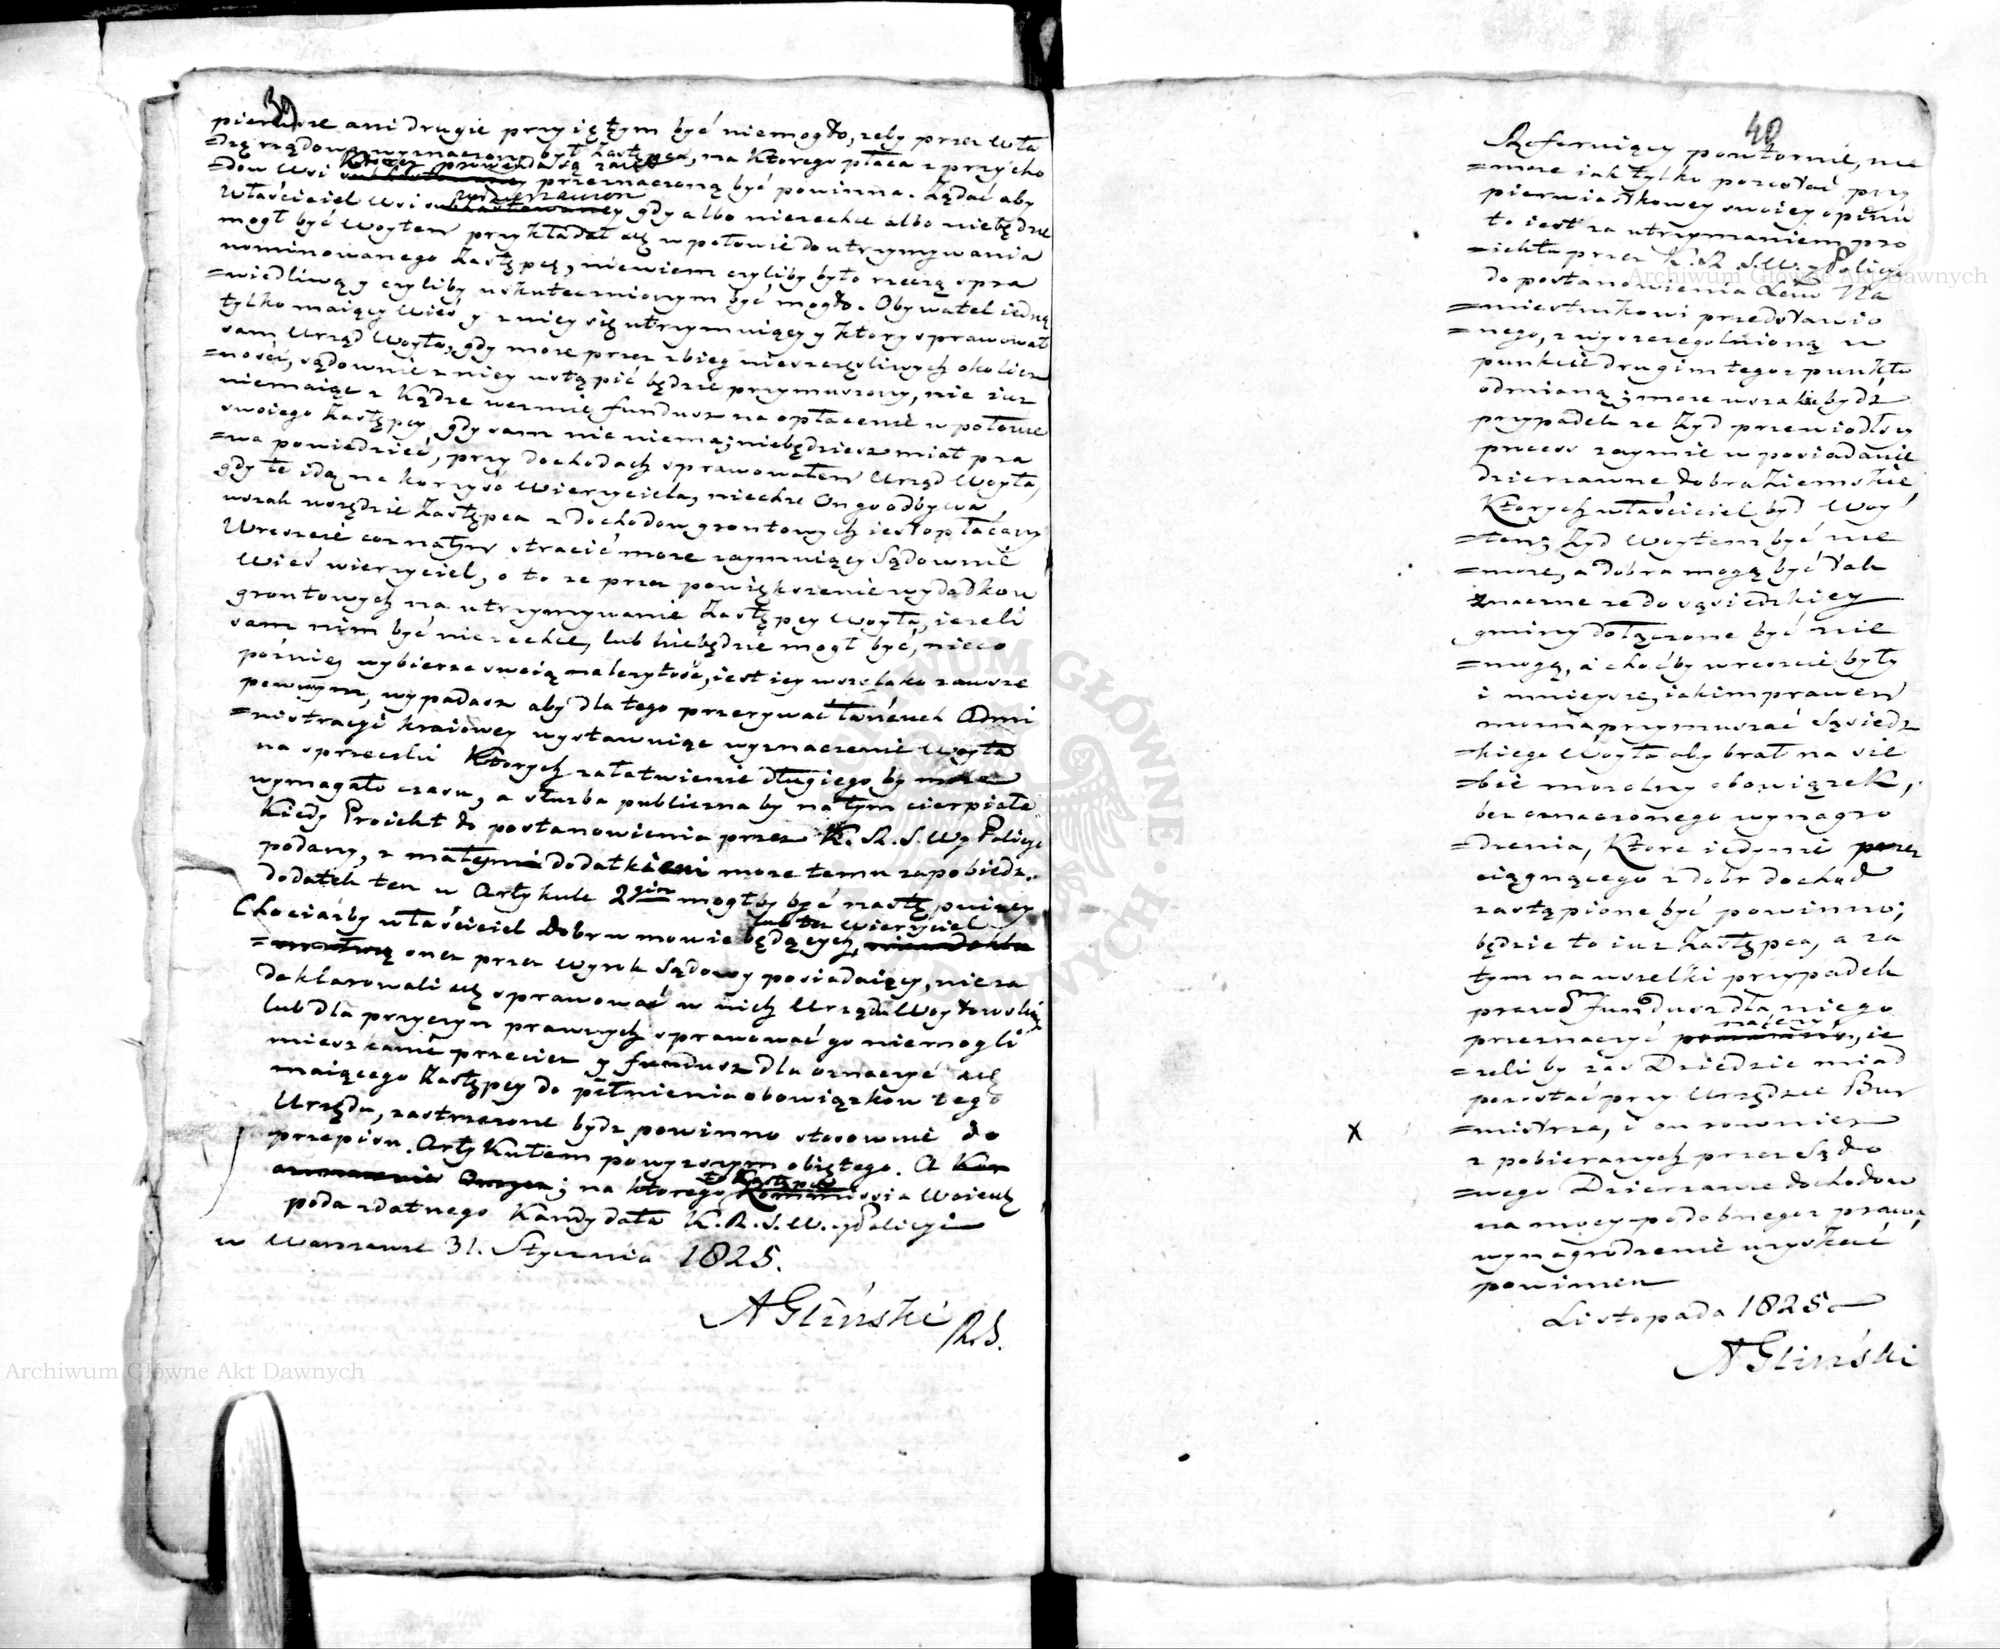 39
pierwsze ani drugie przyiętym być niemogło, żeby przez Wła
=dzę rządową wyznaczony był Zastępca, na którego płaca z przycho
=dow Wsi przeznaczoną być powinna. Żądać aby
Właściciel Wsi gdy albo niezechce albo niebędzie
mogł być Woytem przykładał się w połowie do utrzymywania
nominowanego Zastępcy, niewiem czyliby było rzeczą spra
=wiedliwą y czyliby uskutecznionym być mogło. Obywatel iedną
tylko maiący Wieś y z niey się utrzymuiący y który sprawował
sam Urząd Woyta, gdy może przez zbieg nieszczęśliwych okolicz
=ności, sądownie z niey ustąpić będzie przymuszony, nie iuż
niemaiąc z kądże weźmie fundusz na opłacenie w połowie
swoiego Zastępcy, gdy sam nic niema; niebędziesz miał pra
=wa powiedzieć, przy dochodach sprawowałem Urząd Woyta,
gdy te idą na korzyść Wierzyciela, niechże On go odbywa,
wszak wszędzie Zastępca z dochodow gruntowych iest opłacany
Wreszcie coż na tym stracić może zaymuiący Sądownie
Wieś wierzyciel, o to że przez powiększenie wydatkow
gruntowych na utrzymywanie Zastępcy Woyta, ieżeli
sam nim być niezechce, lub niebędzie mogł być, nieco
pożniey wybierze swoią należytość, iest iey wszelako zawsze
pewnym, wypadasz aby dla tego przerywać łańcuch Admi
=nistracyi kraiowey wystawuiąc wyznaczenie Woyta
na sprzeczki których załatwienie długiego by
wymagało czasu, a służba publiczna by na tym cierpiała
Kiedy Proiekt do postanowienia przez K. R. S. W. y Policyi
podany, z małym dodatkiem może temu zapobiedz.
dodatek ten w Artykule 2gim mogłby być następuiący
Chociażby właściciel Dobr w mowie będących, lub też Wierzyciel
onez przez Wyrok Sądowy posiadaiący, nieza
deklarowali się sprawować w nich Urzędu Woytowskiego
lub dla przyczyn prawnych sprawować go niemogli
mieszkanie przecież y fundusz dla oznaczyć się
maiącego Zastępcy do pełnienia obowiązkow tego
Urzędu, zastrzeżone bydź powinno stosownie do
przepisu Artykułem powyższym obiętego. A
; na którego to Zastępcę Kommissia Woiewdz
poda zdatnego Kandydata K. R. S. W. y Policyi
w Warszawie 31. Stycznia 1825.
A Gliński
RS.
40
Referuiący powtornie, nie
=może iak tylko pozostać przy
pierwiastkowey swoiey opinii
to iest za utrzymaniem pro
=iektu przez K. R. S. W. y Policyi
do postanowienia Xciu Na
=miestnikowi przedstawio
=nego, z wyszczegolnioną w
punkcie drugim tegoż punktu
odmianą; może wszakże bydź
przypadek że Żyd przewiodłszy
process zaymie w posiadanie
dzierżawne dobra Ziemskie,
których właściciel był Woy
=tem; Żyd Woytem być nie
=może, a dobra mogą być tak
znaczne że do sąsiedzkiey
gminy dołączone być nie
=mogą, a choćby wreszcie były
i mnieysze, iakim prawem
można przymuszać Sąsiedz
=kiego Woyta aby brał na sie
=bie mozolny obowiązek,
bez oznaczonego wynagro
=dzenia, które iedynie przez
ciągnącego z dobr dochod
zastąpione być powinno;
będzie to iuż Zastępca, a za
tym na wszelki przypadek
prawo Fundusz dla niego
przeznaczyć należy, ie
=żeli by zaś Dziedzic miał
pozostać przy Urzędzie Bur
=mistrza, i on rownież
z pobieranych przez Sądo
=wego Dzierżawcę dochodow
na mocy podobnegoż prawa,
wynagrodzenie uzyskać
powinien
Listopada 1825
A Gliński
Archiwum Główne Akt Dawnych
Archiwum Główne Akt Dawnych
ARCHIWUM GŁÓWNE AKT DAWNYCH